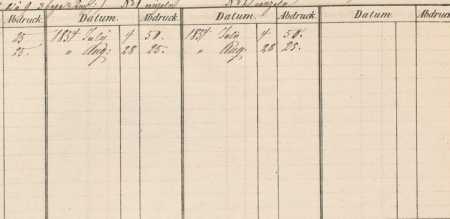 Abdruck. Datum. Abdruck Datum. Abdruck. Datum. Abdruck.
25. 1834 July 4 50. 1834 July 4 50.
25. " Aug: 28 25. " Aug: 28 25.